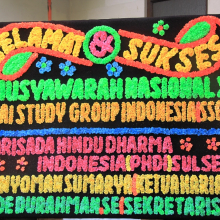 SELAMAT & SUKSES
USYAWARAH NASIONAL
AI STUDY GROUP INDONESIA (SS
ARISADA HINDU DHARMA
INDONESIA (PHDI) SULSE
NYOMAN SUMARYA (KETUA HARIA
DE BURAHMAN SE (SEKRETARIS